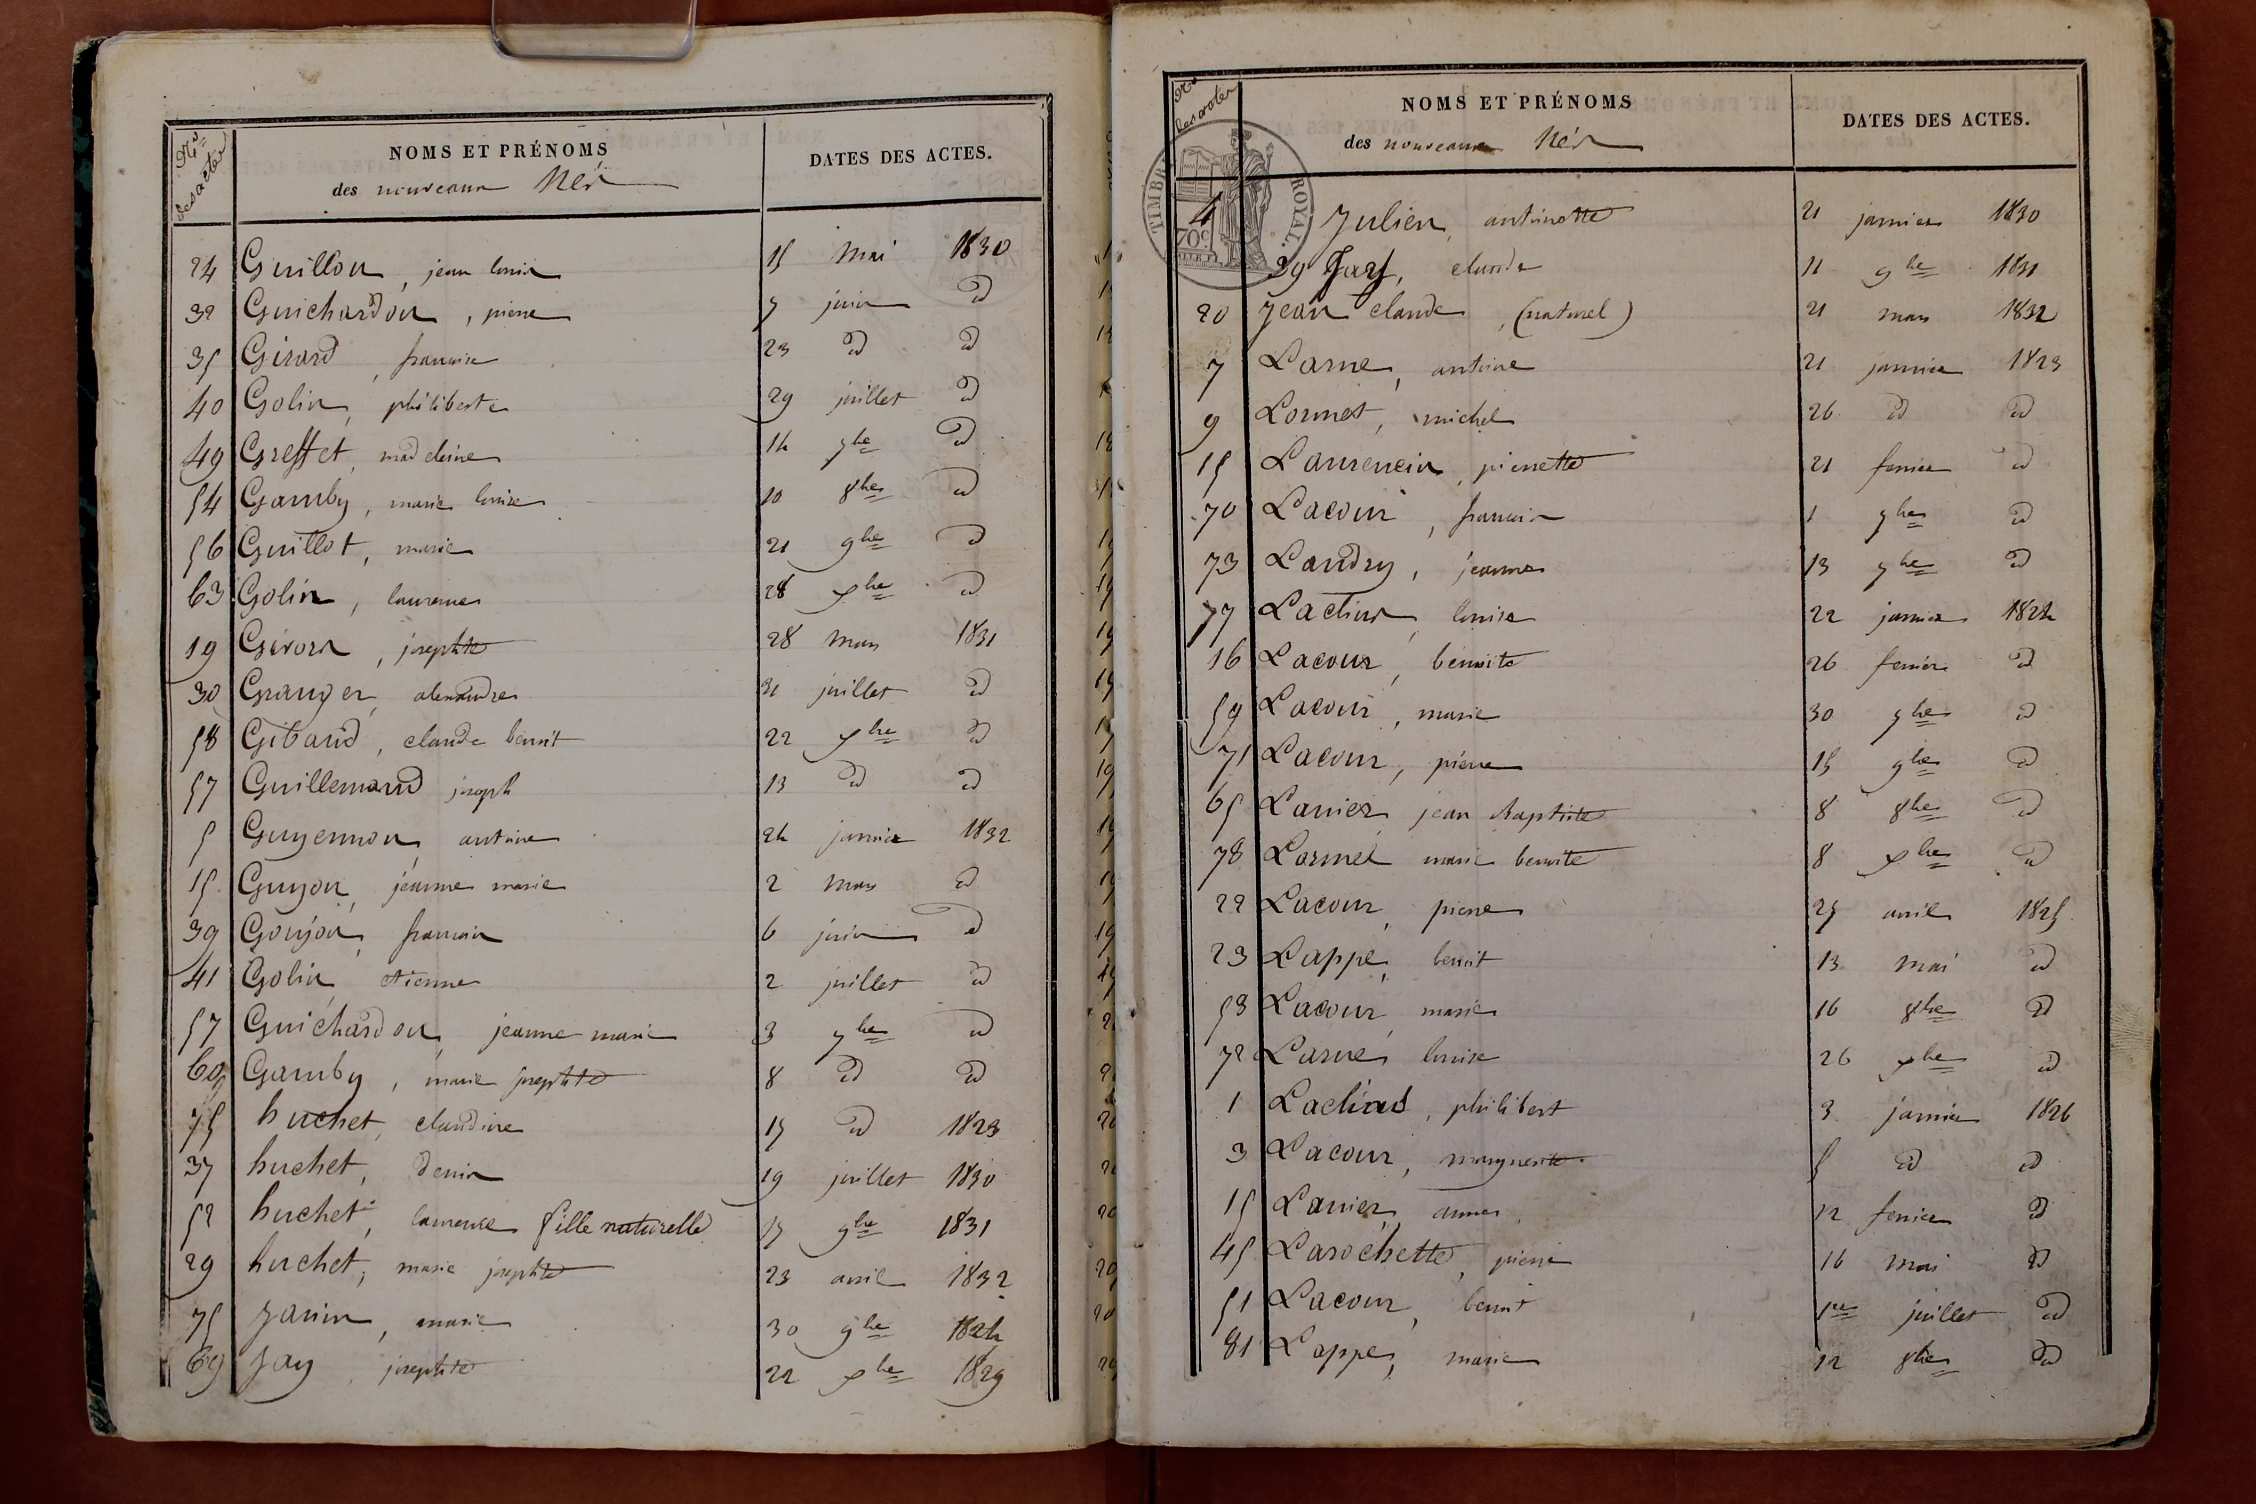 Nos des actes
NOMS ET PRÉNOMS
des nouveaux Nés
DATES DES ACTES.
24 Guillon, jean louis 15 mai 1830
32 Guichardon, pierre 7 juin d
35 Girard, francoise 23 d d
40 Golin, philiberte 29 juillet d
49 Greffet, madeleine 14 7bre d
54 Gamby, marie louise 10 8bre d
56 Guillot, marie 21 9bre d
63 Golin, laurence 28 xbre d
19 Givors, josephte 28 mars 1831
30 Granger, alexandre 31 juillet d
58 Gibaud, claude benoit 22 xbre d
57 Guillemard joseph 13 d d
5 Guyennon, antoine 24 janvier 1832
15 Guyon, jeanne marie 2 mars d
39 Goujon, francois 6 juin d
41 Golin, etienne 2 juillet d
57 Guichardon, jeanne marie 3 7bre d
60 Gamby, marie josephte 8 d d
75 huchet, claudine 15 d 1823
37 huchet, denis 19 juillet 1830
52 huchet, laurence fille naturelle 15 9bre 1831
29 huchet, marie josephte 23 avril 1832
75 Janin, marie 30 9bre 1824
69 Jay, josephte 22 xbre 1829
Nos des actes
NOMS ET PRÉNOMS
des nouveaux Nés
DATES DES ACTES.
TIMBRE ROYAL.
70c
4 Julien, antoinette 21 janvier 1830
39 claude 11 9bre 1831
20 Jean claude, (naturel) 21 mars 1832
7 Larue, antoine 21 janvier 1823
9 Lormet, michel 26 d d
15 Laurencin, pierrette 21 fevrier d
70 Lacour, francois 1 7bre d
73 Landry, jeanne 13 7bre d
77 louise 22 janvier 1824
16 Lacour, benoite 26 fevrier d
59 Lacour, marie 30 7bre d
71 Lacour, pierre 15 9bre d
65 Lanier, jean Baptiste 8 8bre d
78 Lormet marie benoite 8 xbre d
22 Lacour, pierre 25 avril 1825
23 Lappe, benoit 13 mai d
53 Lacour, marie 16 8bre d
72 Larue, louise 26 xbre d
1 philibert 3 janvier 1826
3 Lacour, marguerite 5 d d
15 Lanier, anne 12 fevrier d
45 Larochette, pierre 16 mai d
51 Lacour, benoit 1er juillet d
81 Lappe, marie 12 8bre d